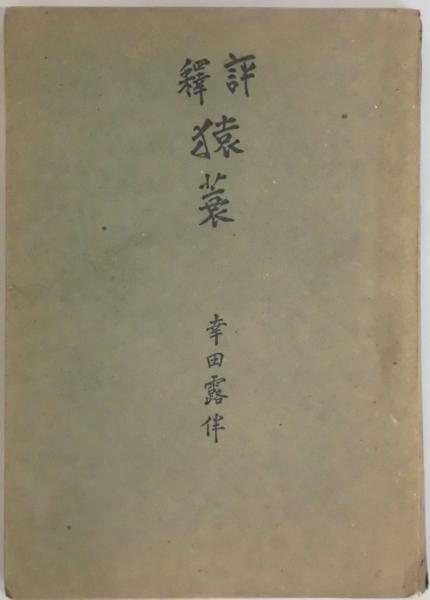 評釋
猿蓑
幸田露伴